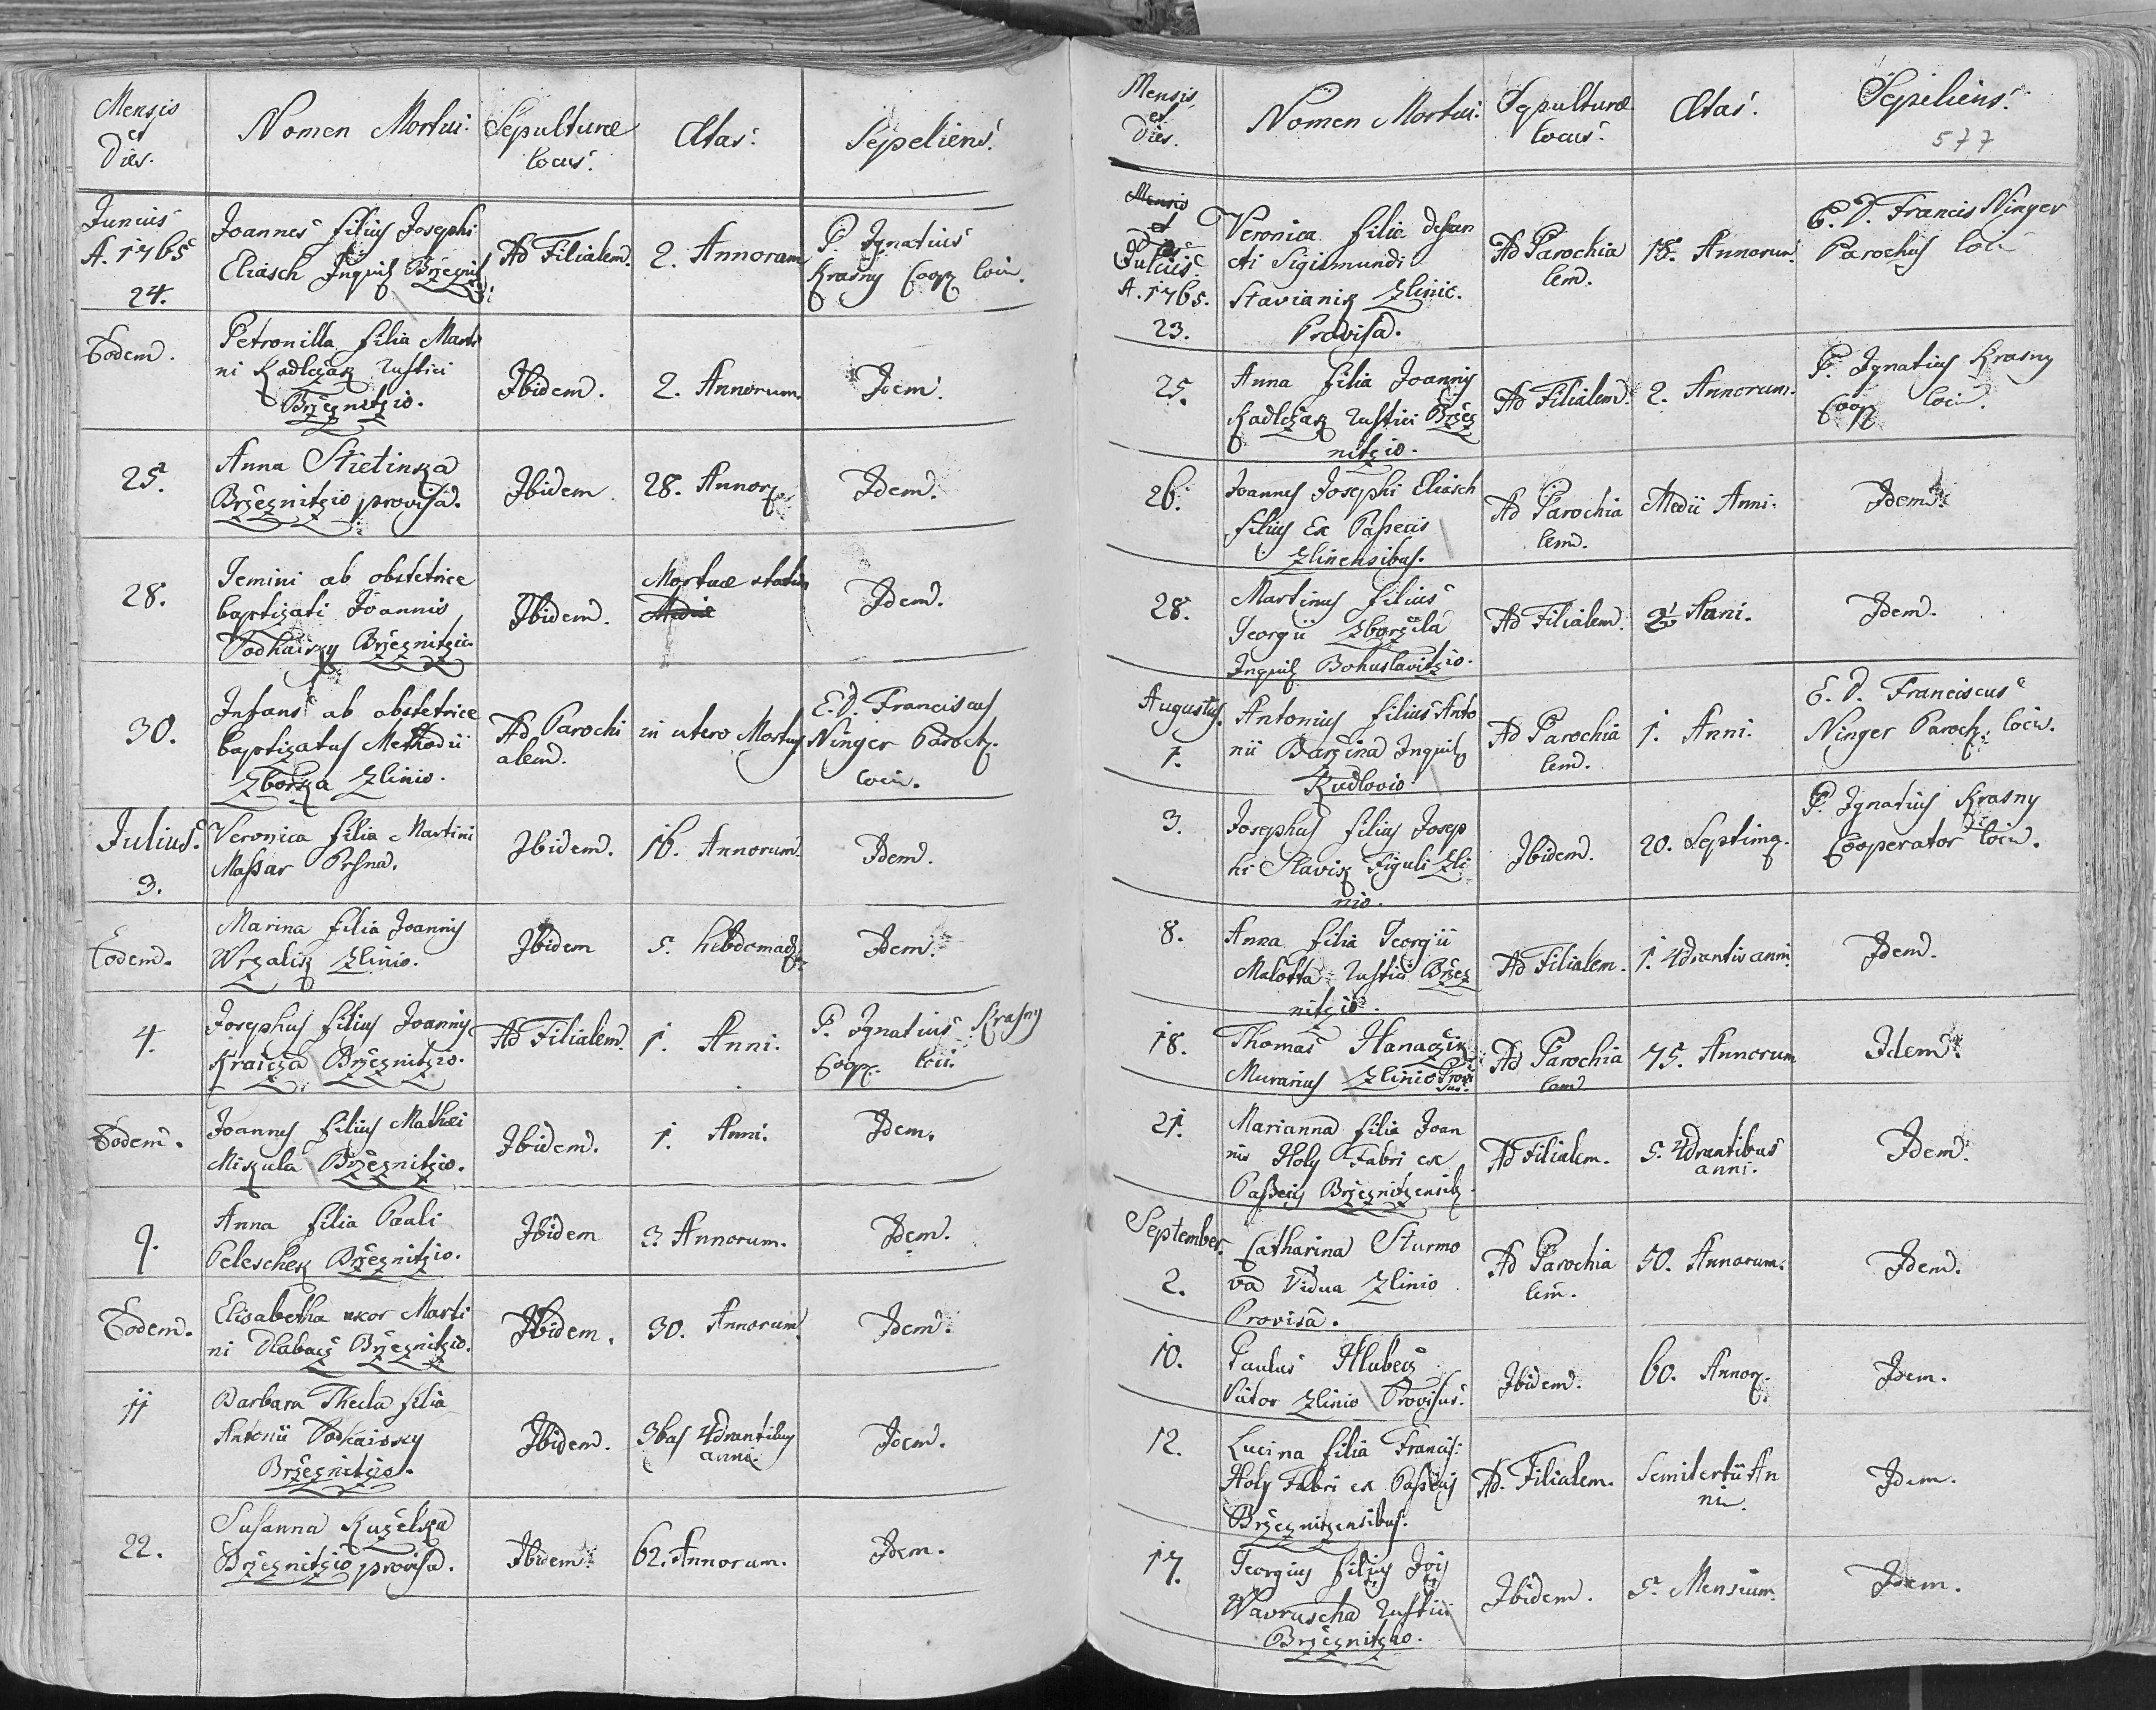 Mensis et Dies. Nomen Mortui. Sepulturæ locus. Ætas. Sepeliens.
Junius A. 1765 24. Joannes filius Josephi Eliasch Inquil Bržeznitz: Ad Filialem. 2. Annorum P. Ignatius Krasny Coop loci.
Eodem. Petronilla filia Marti
ni Kadlczak Rustici
Bržeznitzio. Ibidem. 2. Annorum. Idem.
25. Anna Stietinka
Bržeznitzio provisa. Ibidem. 28. Annor. Idem.
28. Gemini ab obstetrice
baptizati Joannis
Podhaisky Bržeznitzio. Ibidem. Mortuæ statim Idem.
30. Infans ab obstetrice
baptizatus Methodii
Zborka Zlinio. Ad Parochi
alem. in utero Mortuus E. D. Franciscus
Ninger Paroch.
loci.
Julius. 3. Veronica filia Martini
Maßar Prsna. Ibidem. 16. Annorum. Idem.
Eodem. Marina filia Joannis
Wrzalik Zlinio. Ibidem 5. hebdomad. Idem.
4. Josephus filius Joannis
Kraicza Bržeznitzio. Ad Filialem. 1. Anni. P. Ignatius Krasny
Coop. loci.
Eodem. Joannes filius Mathæi
Mikula Bržeznitzio. Ibidem. 1. Anni. Idem.
9. Anna filia Pauli
Peleschek Bržeznitzio. Ibidem 3. Annorum. Idem.
Eodem. Elisabetha uxor Marti
ni Dlabacz Bržeznitzio. Ibidem. 30. Annorum. Idem.
11 Barbara Thecla filia
Antonii Podhaisky
Bržeznitzio. Ibidem. 3bus 4drantibus
anni. Idem.
22. Susanna Kuželka
Bržeznitzio provisa. Ibidem. 62. Annorum. Idem.
Mensis et Dies. Nomen Mortui. Sepulturæ locus. Ætas. Sepeliens.
577
Mensis et Dies Julius. A. 1765. 23. Veronica filia defun
cti Sigismundi
Stavianik Zlinio.
Provisa. Ad Parochia
lem. 18. Annorum. E. D. Francis Ninger
Parochus loci
25. Anna filia Joannis
Kadlczak Rustici Bržez
nitzio. Ad Filialem. 2. Annorum. P. Ignatius Krasny
Coop loci.
26. Joannes Josephi Eliasch
filius Ex Paßecis
Zlinensibus. Ad Parochia
lem. Medii Anni. Idem.
28. Martinus filius
Georgii Zboržila
Inquil Bohuslavitzio. Ad Filialem. 2 Anni. Idem.
Augustus. 1. Antonius filius Anto
nii Baržina Inquil
Kudlovio. Ad Parochia
lem. 1. Anni. E. D. Franciscus
Ninger Paroch. loci.
3. Josephus filius Josep
hi Slavik Figuli Zli
nio. Ibidem. 20. Septima. P. Ignatius Krasny
Cooperator loci.
8. Anna filia Georgii
Malotta Rustici Bržez
nitzio. Ad Filialem. 1. 4drantis anni. Idem.
18. Thomas Hanaczik
Murarius Zlinio Provi
sus. Ad Parochia
lem 75. Annorum Idem.
21. Marianna filia Joan
nis Holy Fabri ex
Paßecis Bržeznitzensib. Ad Filialem. 5. 4drantibus
anni. Idem.
September. 2. Catharina Sturmo
va Vidua Zlinio
Provisa. Ad Parochia
lem. 50. Annorum. Idem.
10. Paulus Hlubecz
Viator Zlinio Provisus. Ibidem. 60. Annor. Idem.
12. Lucina filia Francis:
Holy Fabri ex Paßecis
Bržeznitzensibus. Ad Filialem. Semitertii An
ni. Idem.
17. Georgius filius Jois
Wavruscha Rustici
Bržeznitzio. Ibidem. 5. Mensium. Idem.